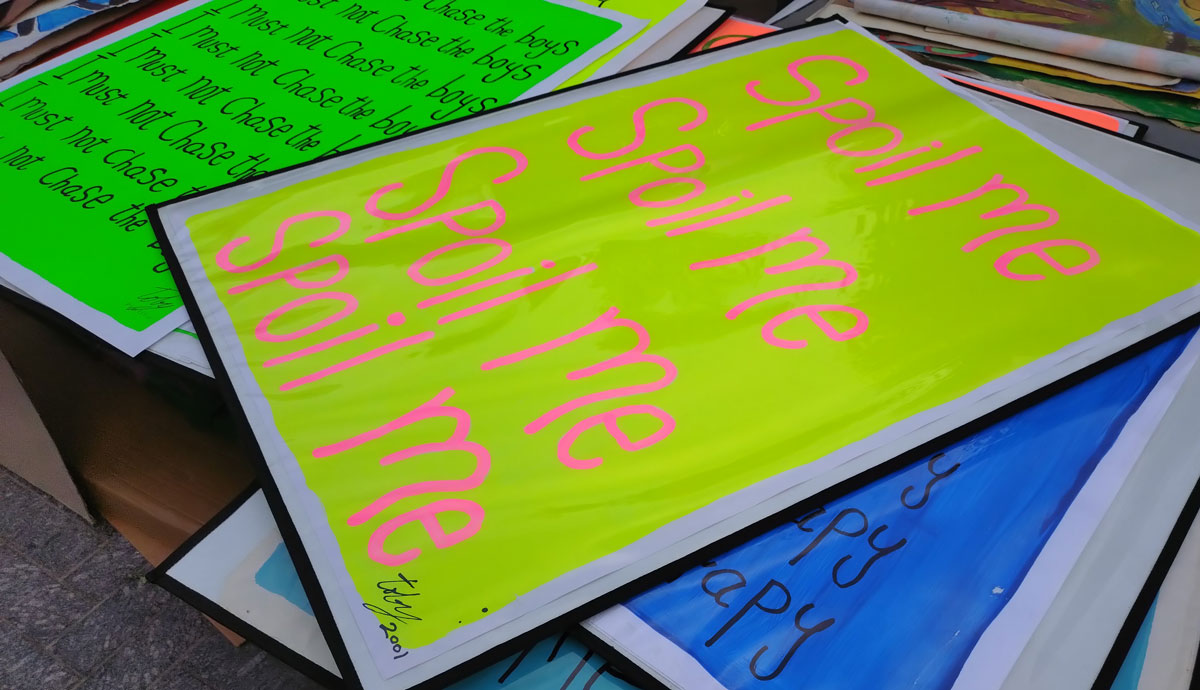 must not Chase the boys
I must not Chase the boys
I must not Chase the boys
I must not Chase the boy
I must not Chase the
I must not Chase the
not Chase the
toby
Spoil me
Spoil me
Spoil me
Spoil me
toby
2001
y
apy
apy